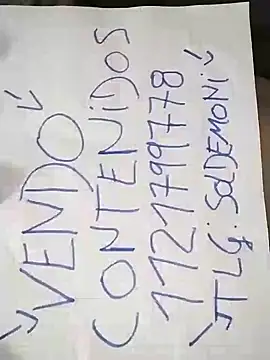 VENDO
CONTENIDOS
1121799778
TLG: SOLDEMONI